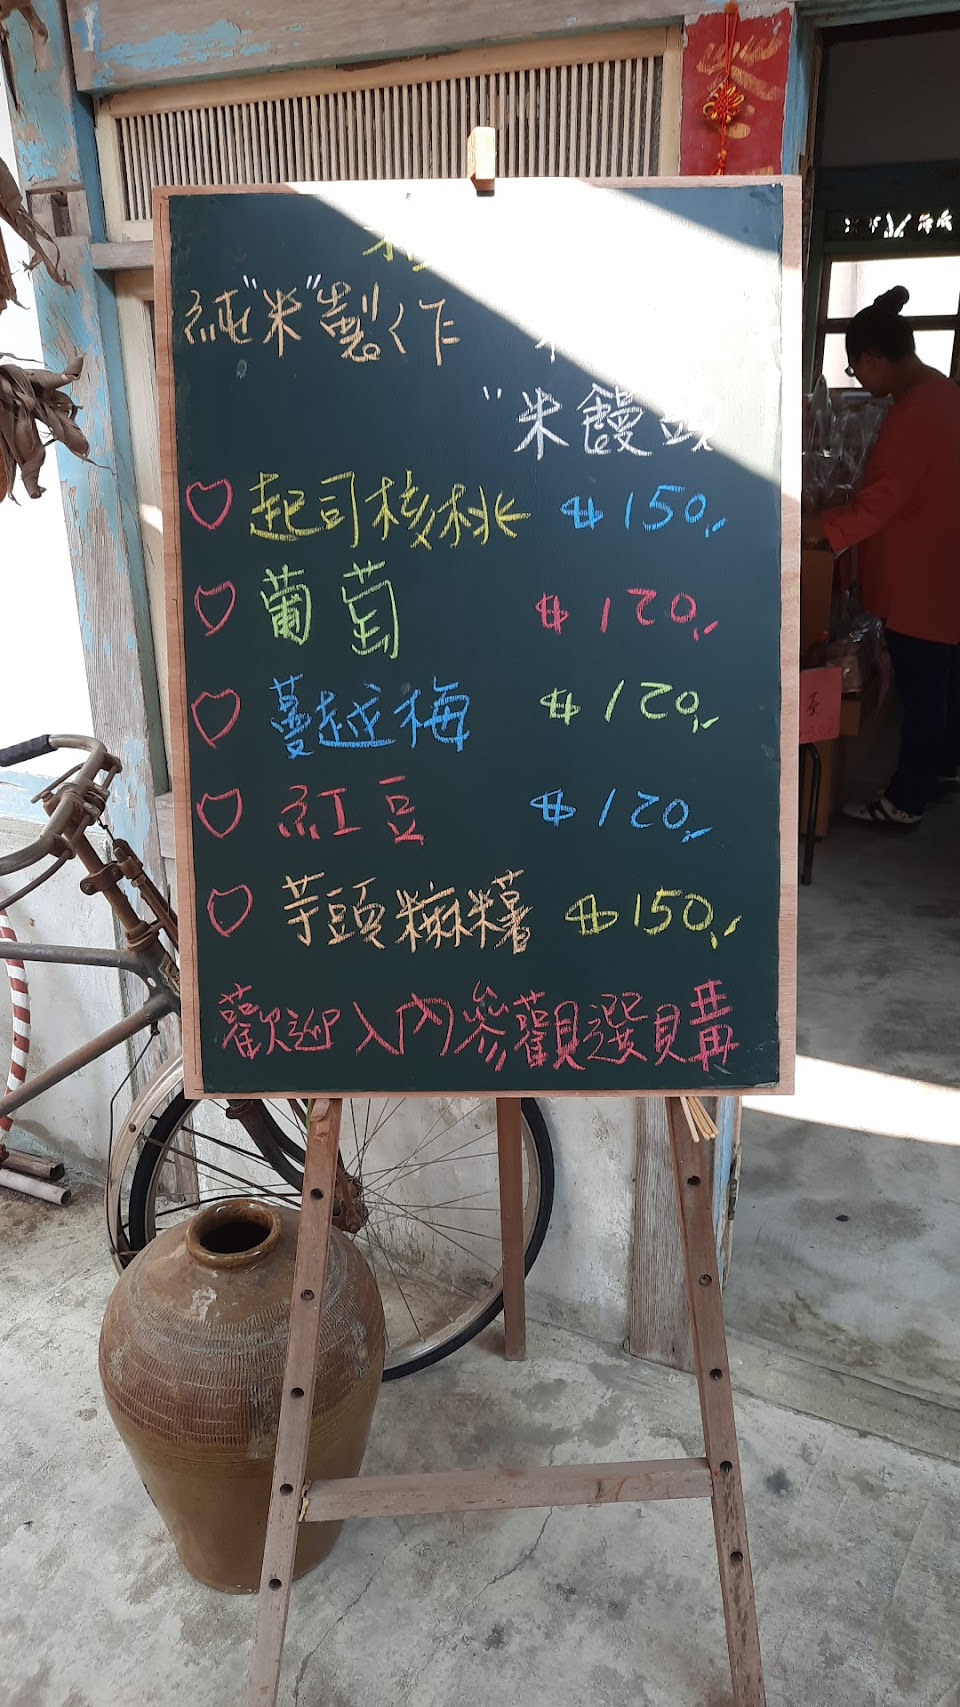 純"米"製作
"米饅頭
♡ 起司核桃 $150,-
♡ 葡萄 $120,-
♡ 蔓越梅 $120,-
♡ 紅豆 $120,-
♡ 芋頭麻糬 $150,-
歡迎入內參觀選購